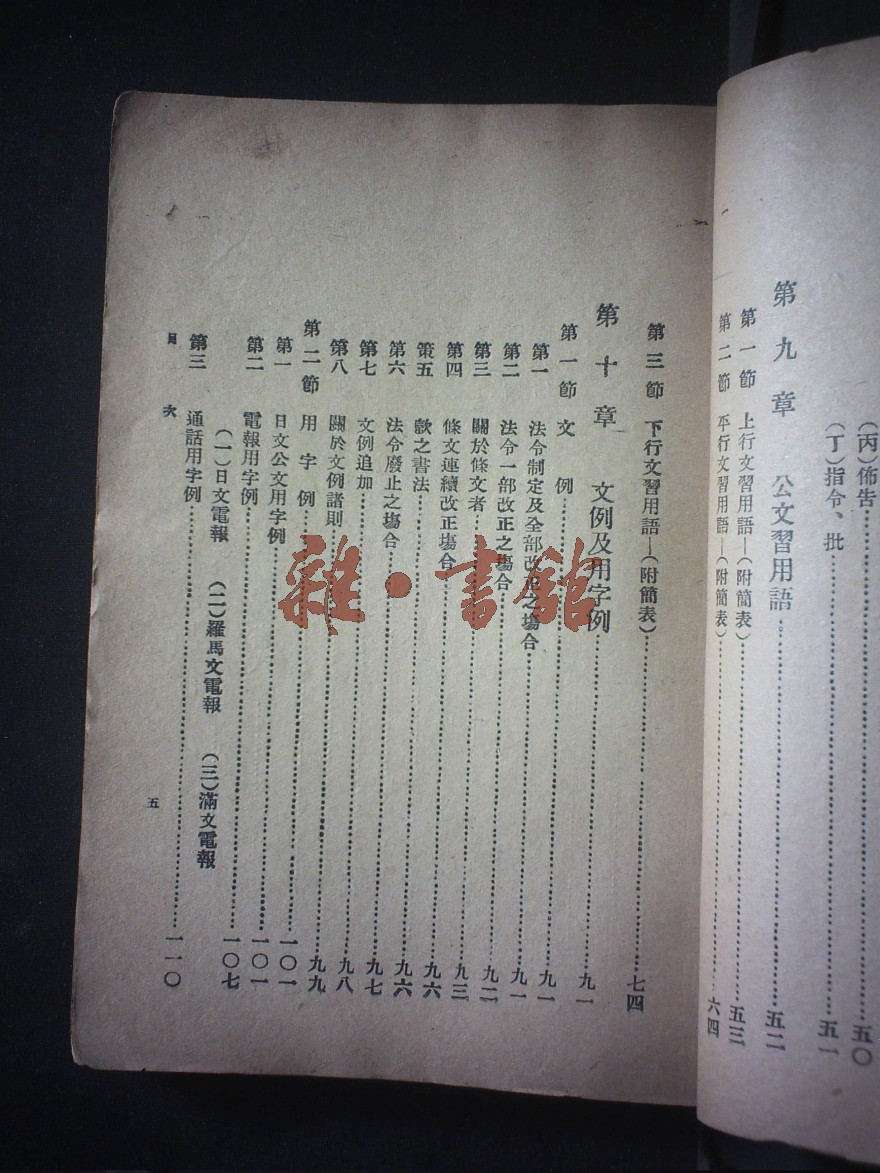 (丙)佈告……五〇
(丁)指令、批……五一
第九章 公文習用語……五二
第一節 上行文習用語—(附簡表)……五三
第二節 平行文習用語—(附簡表)……六四
第三節 下行文習用語—(附簡表)……七四
第十章 文例及用字例……九一
第一節 文例……九一
第一 法令制定及全部改正之場合……九一
第二 法令一部改正之場合……九二
第三 關於條文者……九三
第四 條文連續改正場合……九六
策五 款之書法……九六
第六 法令廢止之場合……九七
第七 文例追加……九八
第八 關於文例諸則……九九
第二節 用字例……一〇一
第一 日文公文用字例……一〇一
第二 電報用字例……一〇七
(一)日文電報 (二)羅馬文電報 (三)滿文電報
第三 通話用字例……一一〇
目次 五
雜·書館